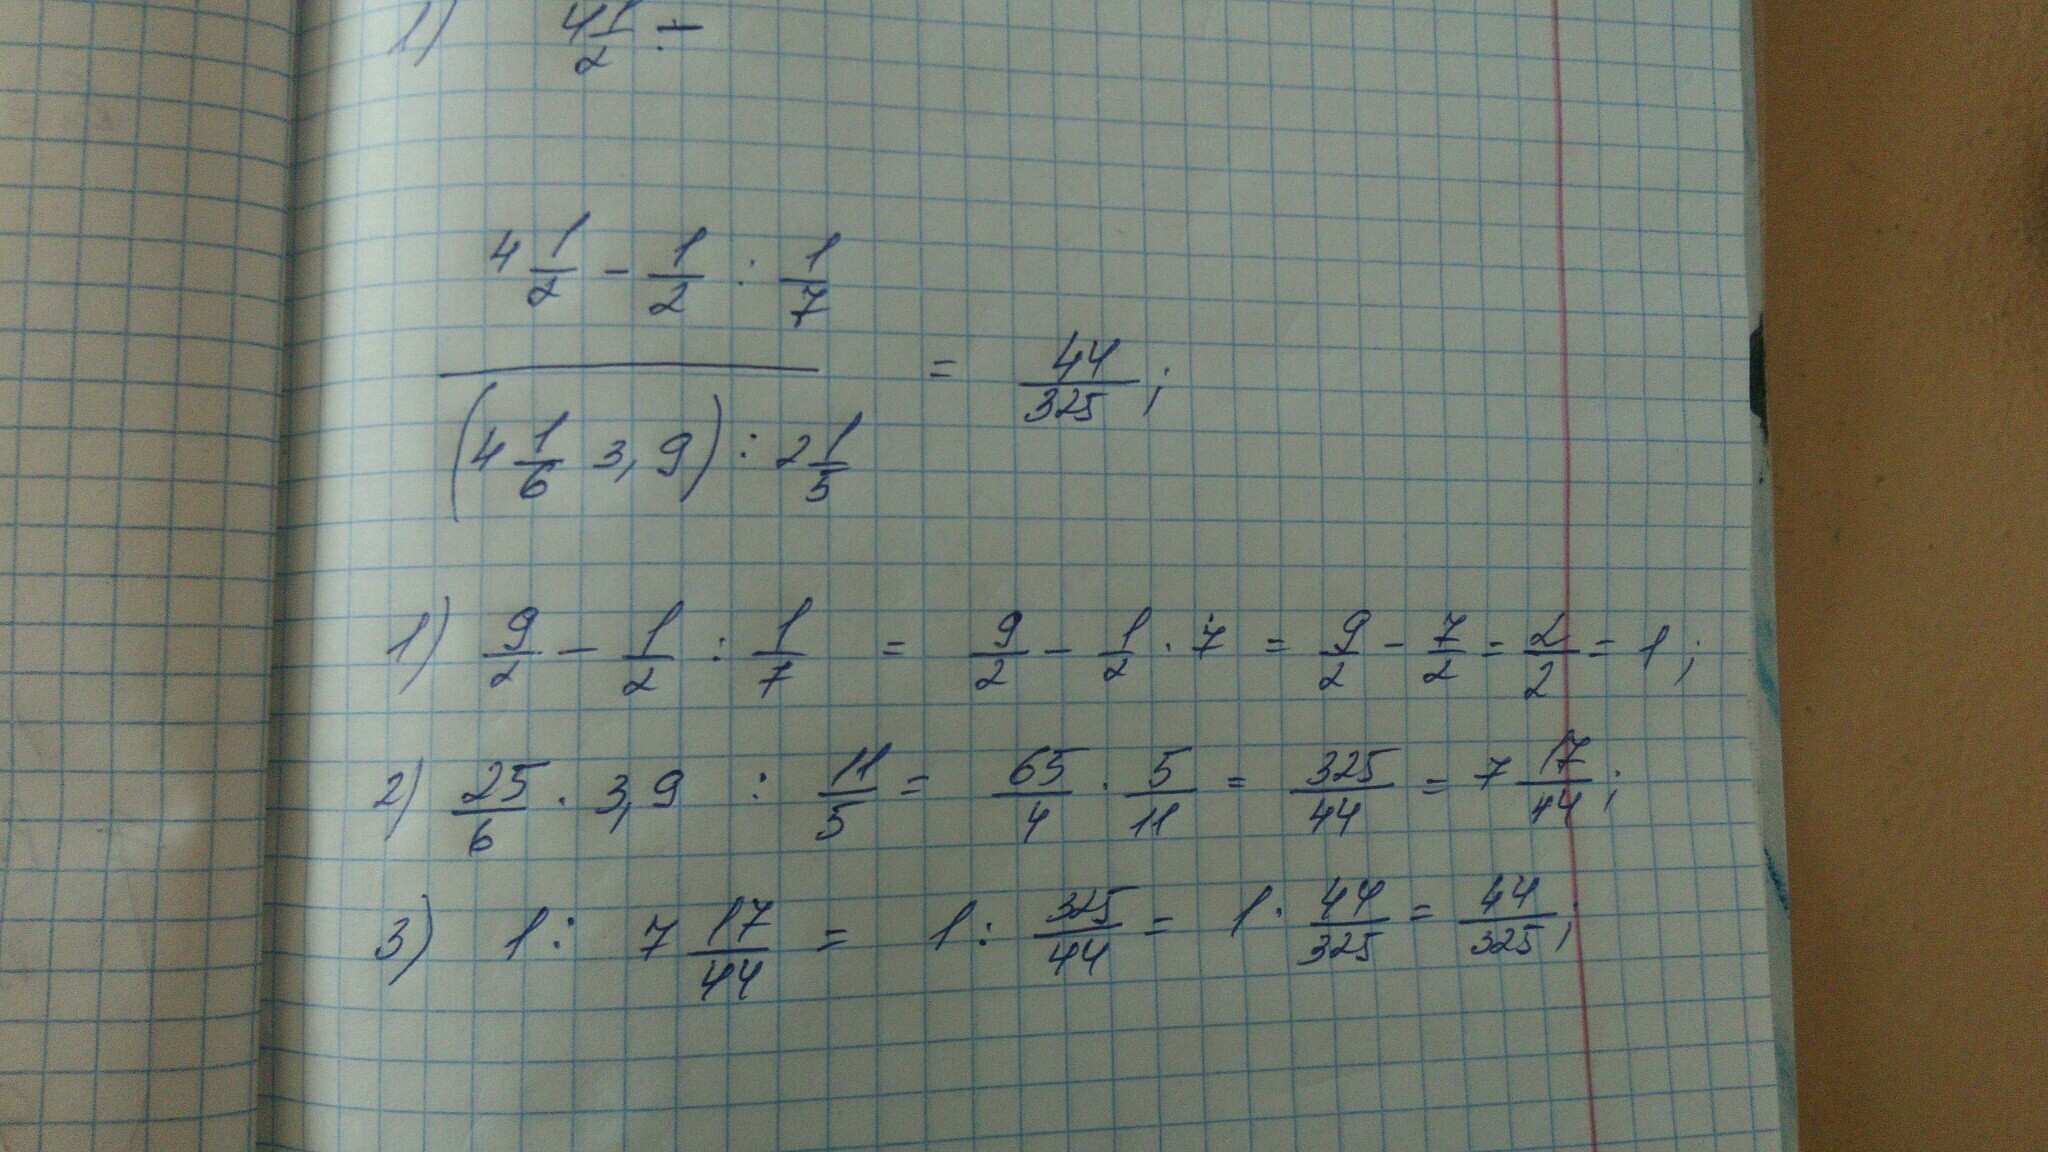 1) 4 1/2 ÷
4 1/2 - 1/2 : 1/7
= 44/325;
(4 1/6 3,9) : 2 1/5
1) 9/2 - 1/2 : 1/7 = 9/2 - 1/2 · 7 = 9/2 - 7/2 = 2/2 = 1;
2) 25/6 · 3,9 : 11/5 = 65/4 · 5/11 = 325/44 = 7 17/44;
3) 1 : 7 17/44 = 1 : 325/44 = 1 · 44/325 = 44/325;